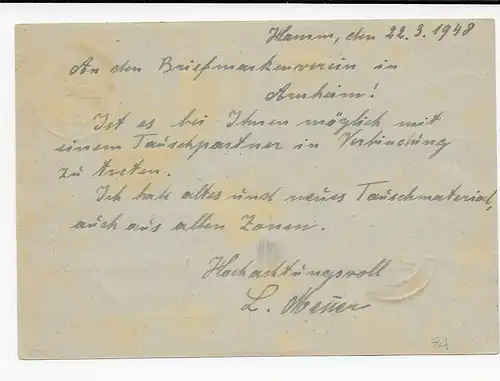 Hamm, den 22.3.1948
An den Briefmarkenverein in
Arnheim!
Ist es bei Ihnen möglich mit
einem Tauschpartner in Verbindung
zu treten.
Ich habe altes und neues Tauschmaterial,
auch aus allen Zonen.
Hochachtungsvoll
L.